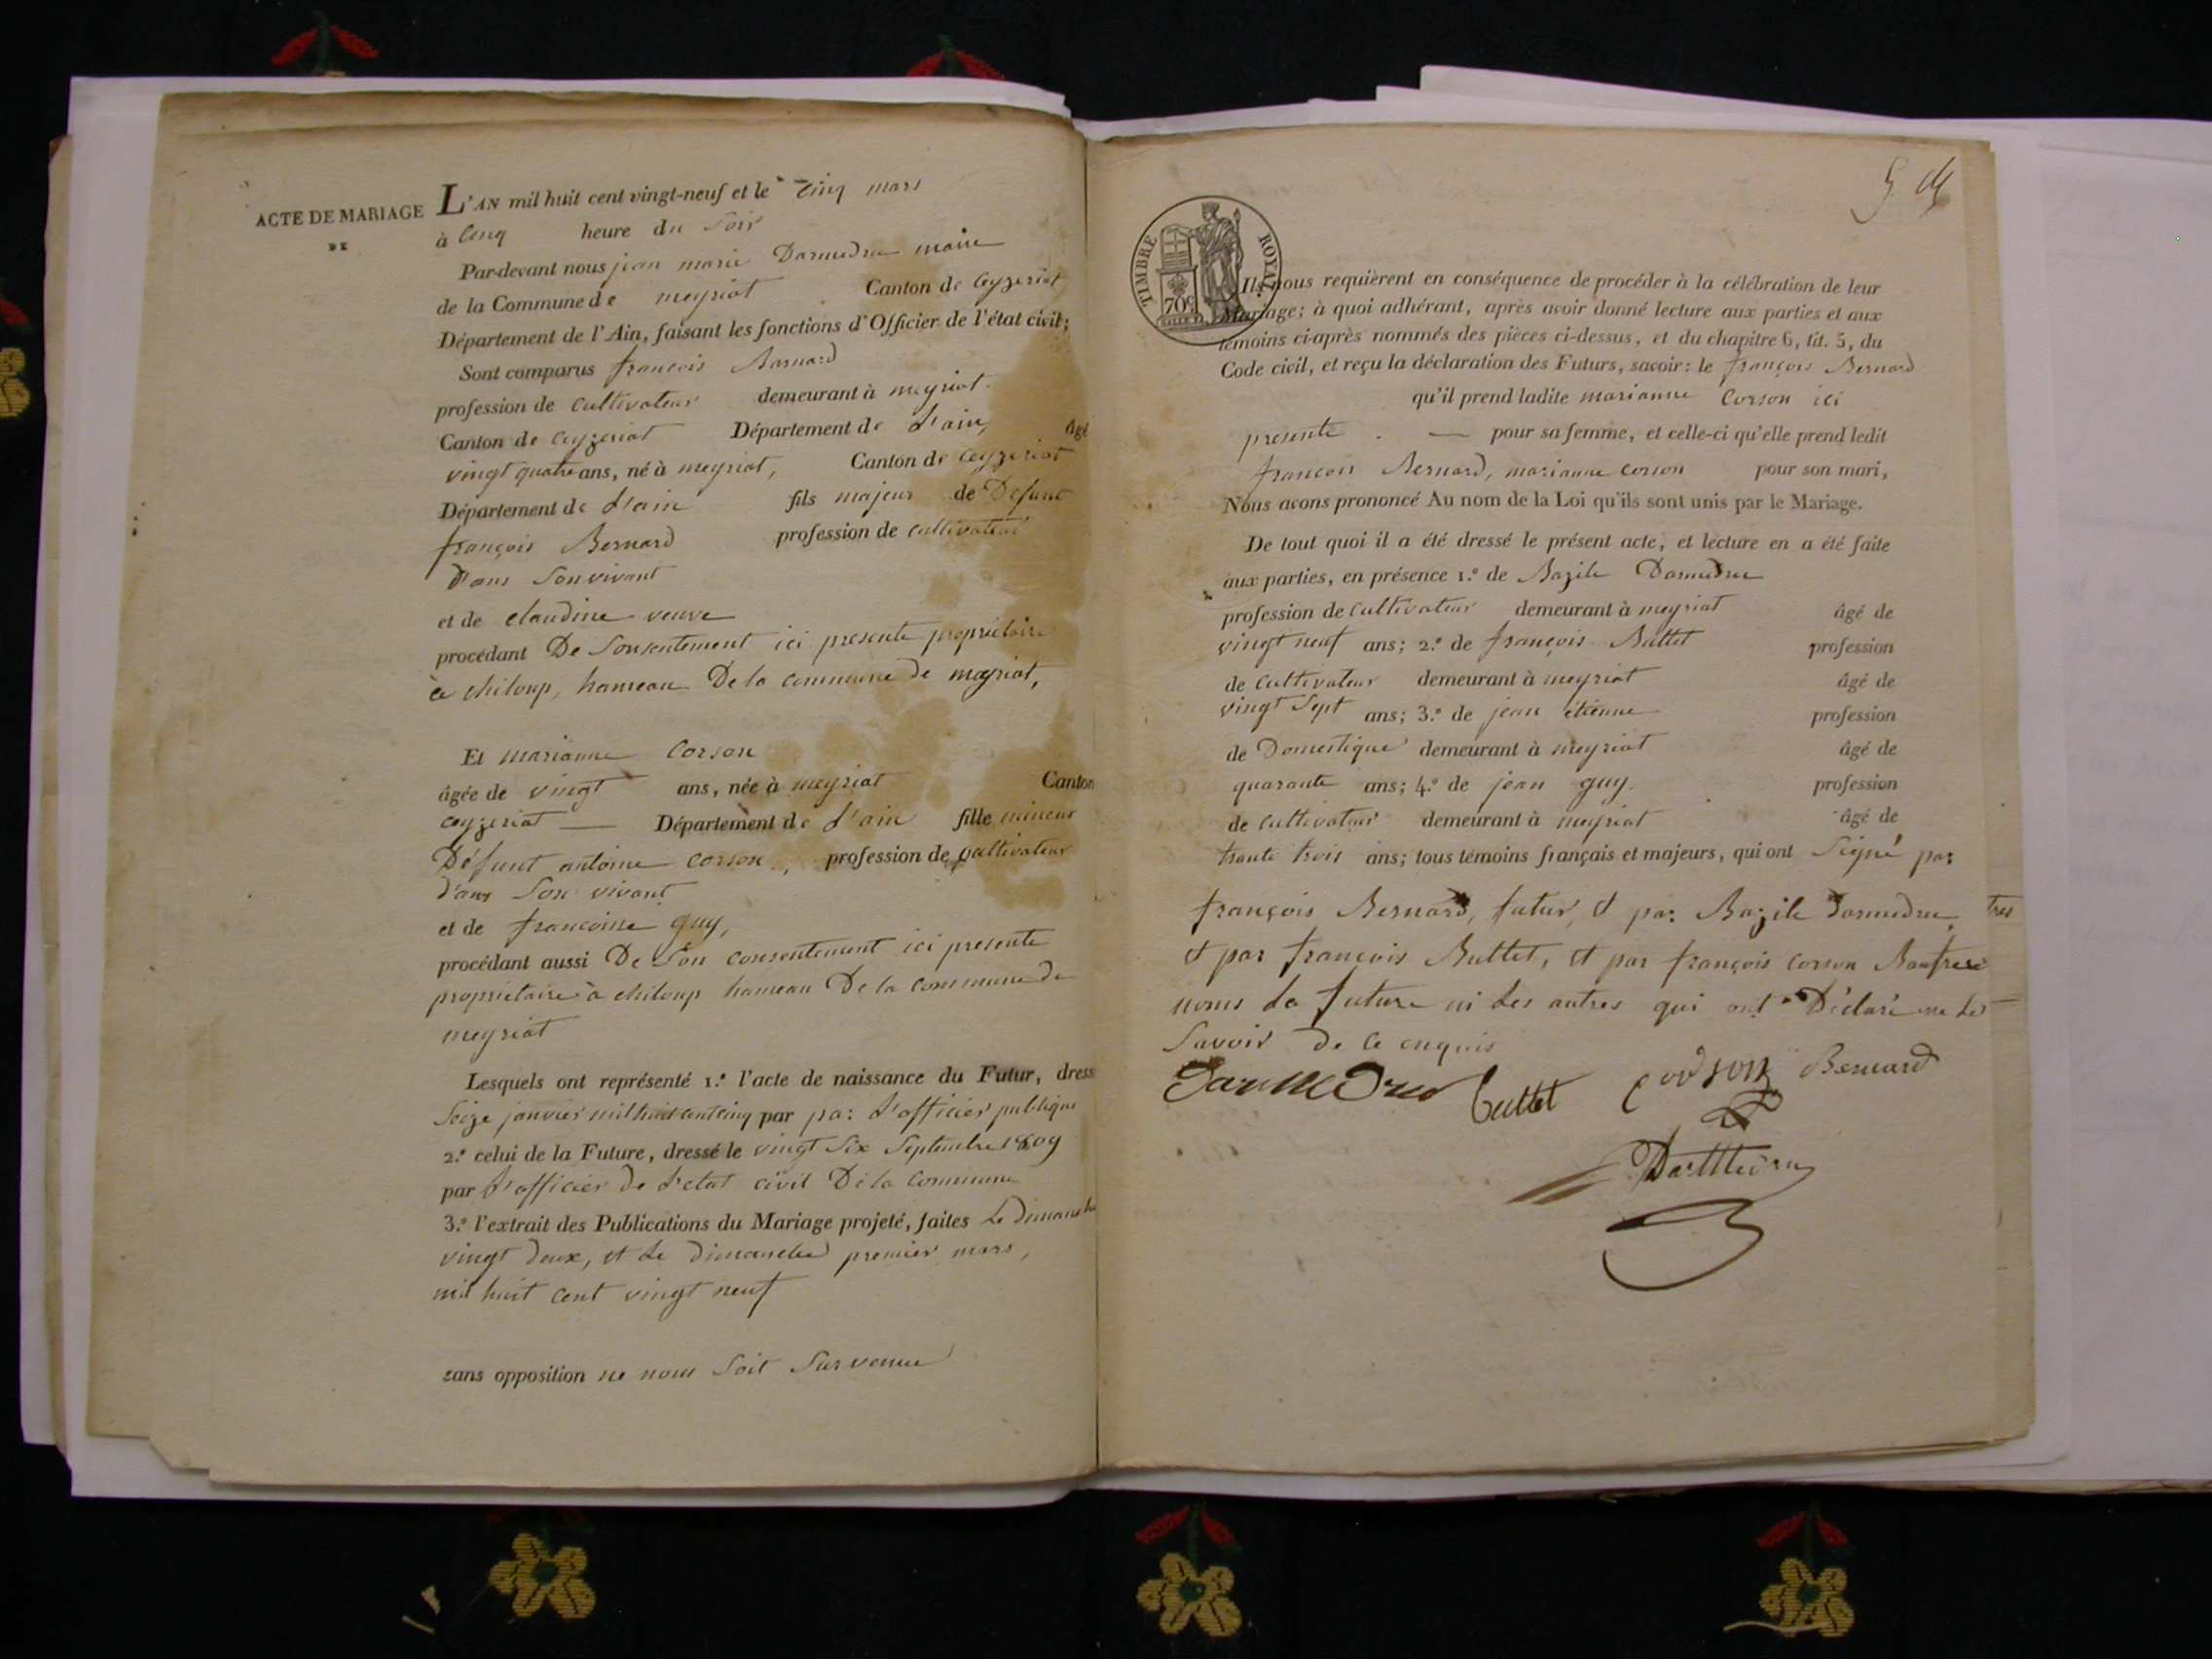 ACTE DE MARIAGE
DE
L'AN mil huit cent vingt-neuf et le cinq mars
à cinq heure du soir
Par-devant nous jean marie Darmedru maire
de la Commune de meyriat Canton de Ceyzeriat
Département de l'Ain, faisant les fonctions d'Officier de l'état civil;
Sont comparus françois Barnard
profession de cultivateur demeurant à meyriat
Canton de Ceyzeriat Département de L'ain, âgé
vingt quatre ans, né à meyriat, Canton de Ceyzeriat
Département de L'ain fils majeur de Défunt
françois Bernard profession de cultivateur
Dans Son vivant
et de claudine veuve
procédant De Son sentement ici presente propriétaire
à chiloup, hameau De la commune de meyriat,
Et marianne Corson
âgée de vingt ans, née à meyriat Canton
ceyzeriat — Département de L'ain fille mineur
Défunt antoine corson, profession de cultivateur
d'ans Son vivant
et de francoise guy,
procédant aussi De Son consentement ici presente
proprietaire à chiloup hameau De la commune de
meyriat
Lesquels ont représenté 1.º l'acte de naissance du Futur, dress
Seize janvier mil huit cent cinq par par L'officier publique
2.º celui de la Future, dressé le vingt Six Septembre 1809
par L'officier De L'etat civil De la Commune
3.º l'extrait des Publications du Mariage projeté, faites Le Dimanche
vingt deux, et Le Dimanche premier mars,
mil huit cent vingt neuf
sans opposition ne nous Soit Survenue
5.
TIMBRE ROYAL
70c
Ils nous requièrent en conséquence de procéder à la célébration de leur
Mariage; à quoi adhérant, après avoir donné lecture aux parties et aux
témoins ci-après nommés des pièces ci-dessus, et du chapitre 6, tit. 5, du
Code civil, et reçu la déclaration des Futurs, savoir: le françois Bernard
qu'il prend ladite marianne Corson ici
presente . — pour sa femme, et celle-ci qu'elle prend ledit
francois Bernard, marianne corson pour son mari,
Nous avons prononcé Au nom de la Loi qu'ils sont unis par le Mariage.
De tout quoi il a été dressé le présent acte, et lecture en a été faite
aux parties, en présence 1.º de Bazile Darmedru
profession de cultivateur demeurant à meyriat âgé de
vingt neuf ans; 2.º de françois Buttet profession
de cultivateur demeurant à meyriat âgé de
vingt Sept ans; 3.º de jean étienne profession
de Domestique demeurant à meyriat âgé de
quarante ans; 4.º de jean guy. profession
de cultivateur demeurant à meyriat âgé de
trante trois ans; tous témoins français et majeurs, qui ont Signé par
françois Bernard, futur, et par Bazile Darmedru,
et par francois Buttet, et par françois corson Baufrere
nonis La future ni Les autres qui ont Déclaré ne Le
Savoir De ce enquis
Darmedru buttet corson Bernard
Darmedru